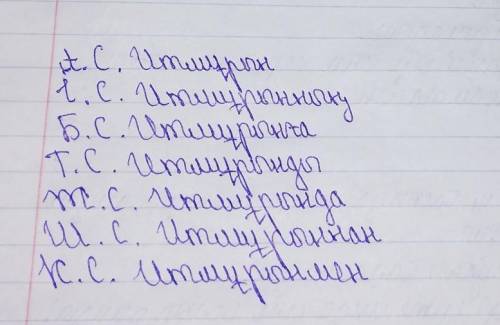 А. С. Итмұрын
І. С. Итмұрынның
Б. С. Итмұрынға
Т. С. Итмұрынды
Ж. С. Итмұрында
Ш. С. Итмұрыннан
К. С. Итмұрынмен